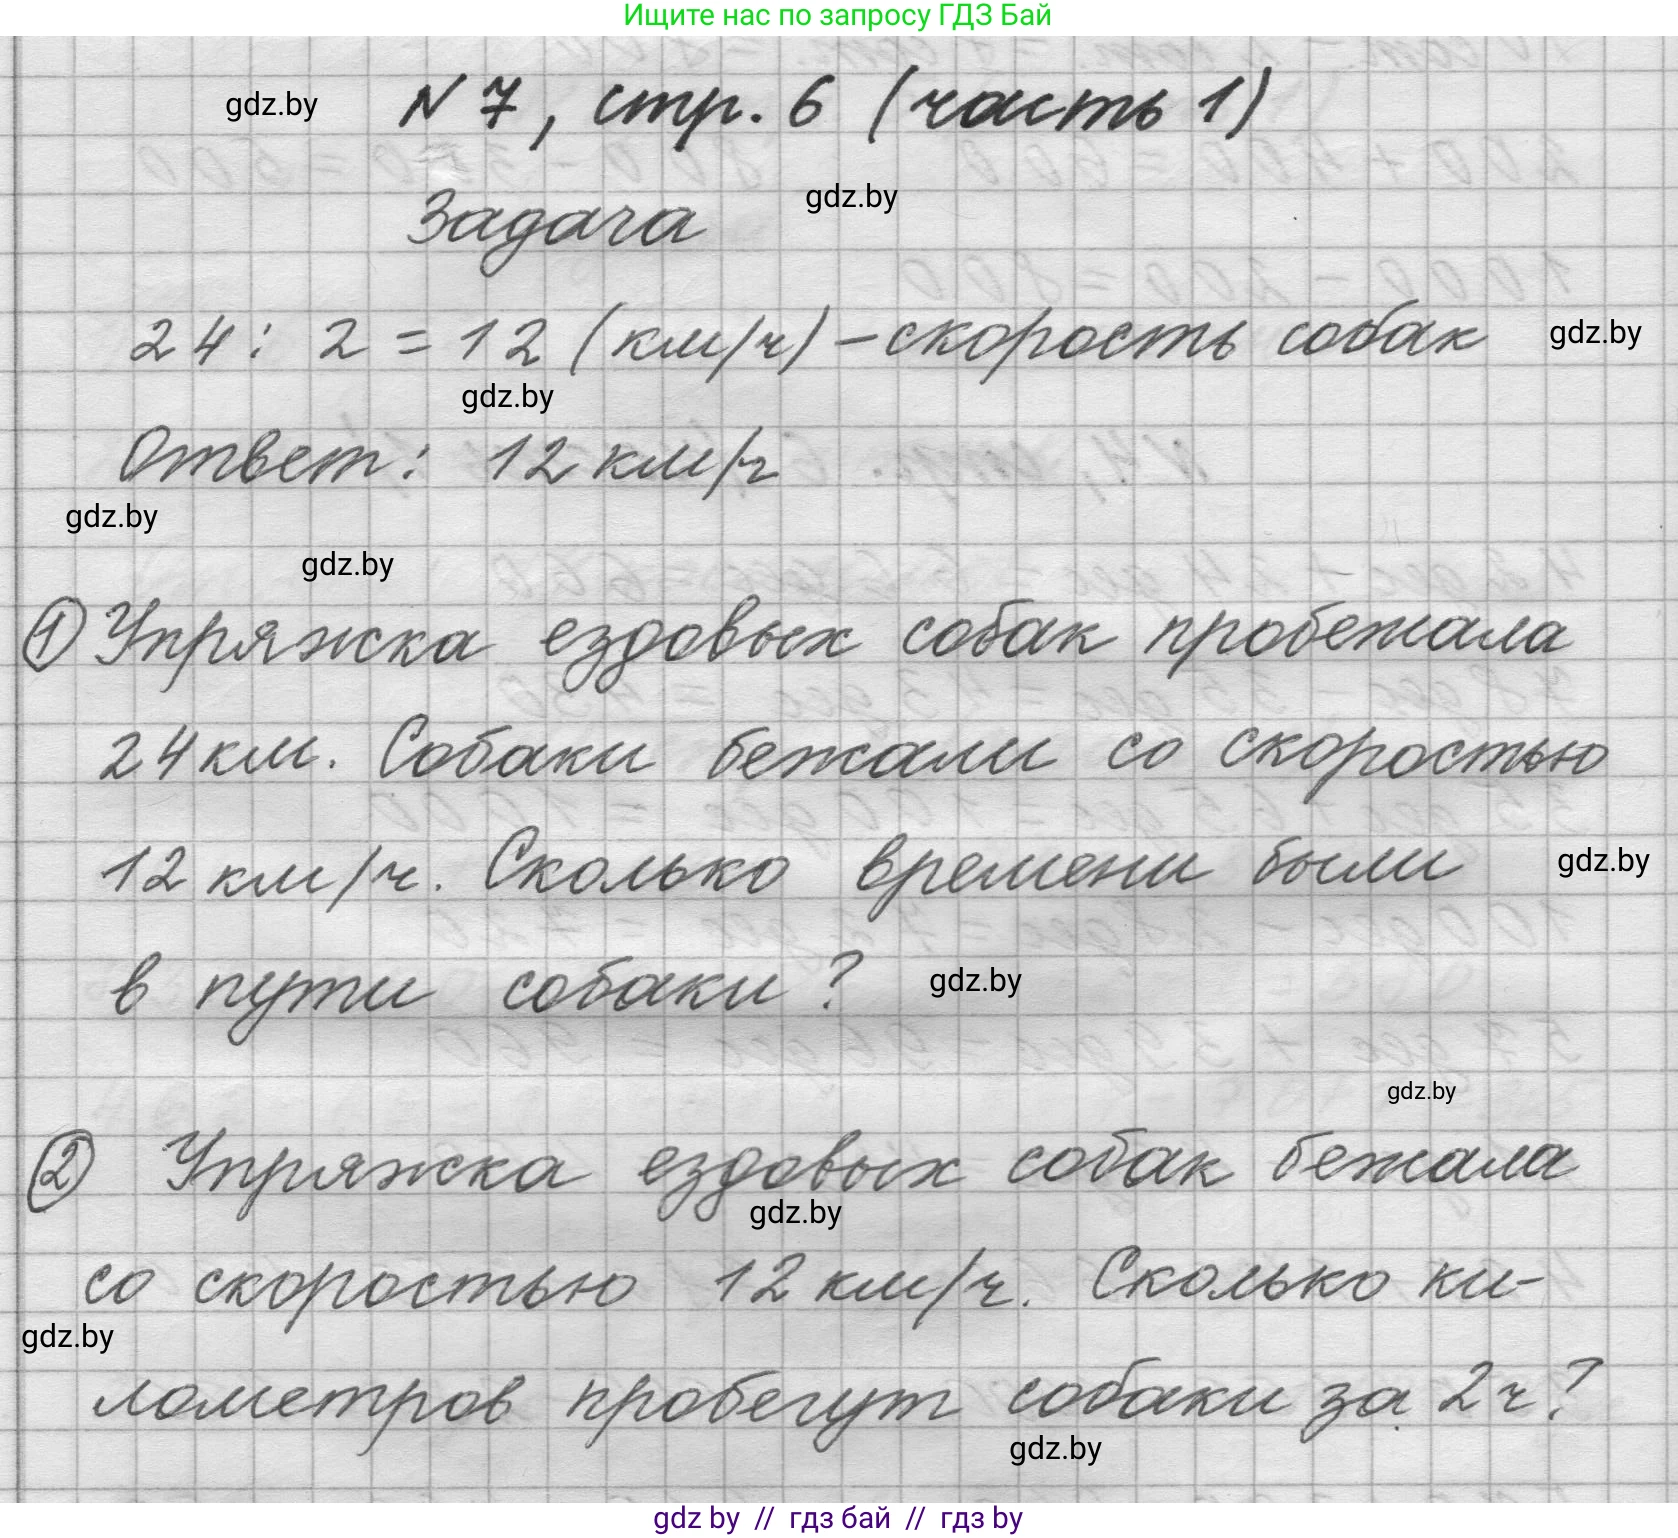 Ищите нас по запросу ГДЗ Бай
gdz.by
N 7, стр. 6 (часть 1)
Задача
gdz.by
24 : 2 = 12 (км/ч) – скорость собак
gdz.by
gdz.by
Ответ: 12 км/ч
gdz.by
gdz.by
① Упряжка ездовых собак пробежала
24 км. Собаки бежали со скоростью
12 км/ч. Сколько времени были
gdz.by
в пути собаки?
gdz.by
gdz.by
② Упряжка ездовых собак бежала
gdz.by
со скоростью 12 км/ч. Сколько ки-
gdz.by
лометров пробегут собаки за 2 ч?
gdz.by
gdz by // гдз бай // гдз by